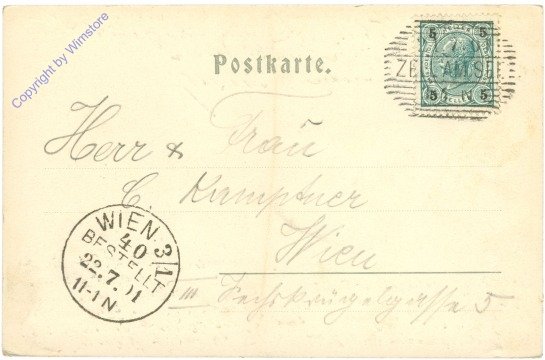 Copyright by Winstore
Postkarte.
5 5
ZELL AM SEE
5 5
Herr & Frau
C. Kamptner
Wien
III Sechskrügelgasse 5
WIEN 3/1
40
BESTELLT
22.7.01
11-1N